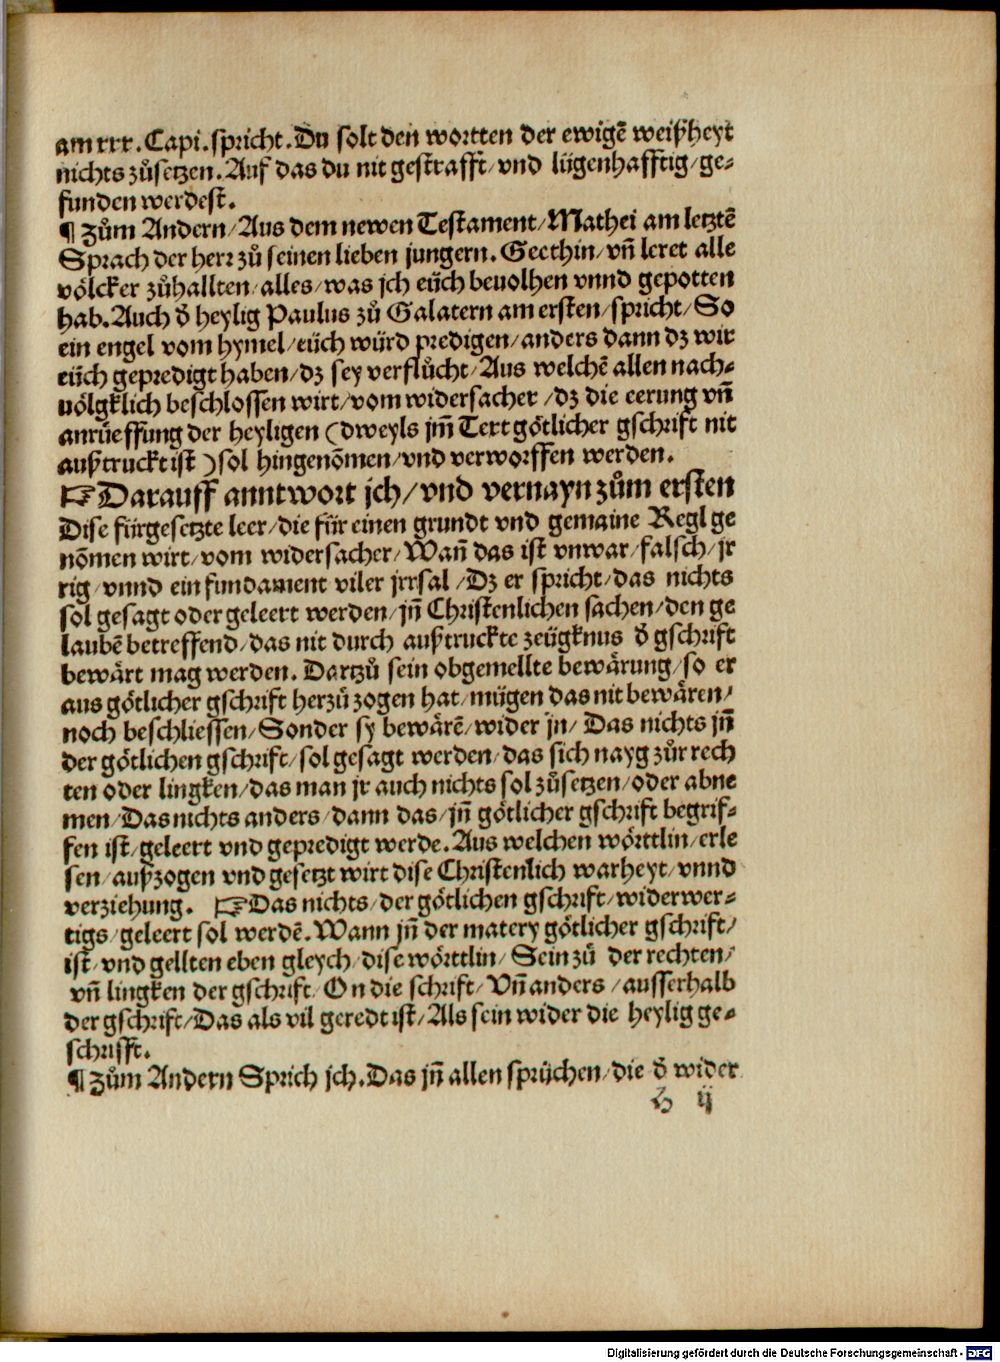 am xxx. Capi. spricht. Du solt den wortten der ewigẽ weißheyt
nichts zůsetzen. Auf das du nit gestrafft/ vnd lügenhafftig/ ge⸗
funden werdest.
¶ Zům Andern/ Aus dem newen Testament/ Mathei am letztẽ
Sprach der herr zů seinen lieben jungern. Geethin/ vñ leret alle
völcker zůhallten/ alles/ was jch eüch beuolhen vnnd gepotten
hab. Auch d̕ heylig Paulus zů Galatern am ersten/ spricht/ So
ein engel vom hymel/ eüch würd predigen/ anders dann dz wir
eüch gepredigt haben/ dz sey verflůcht/ Aus welchẽ allen nach⸗
uölgklich beschlossen wirt/ vom widersacher/ dz die eerung vñ
anrüeffung der heyligen (dweyls jm̃ Text götlicher gschrift nit
außtruckt ist) sol hingenõmen/ vnd verworffen werden.
☞ Darauff anntwort jch/ vnd vernayn zům ersten
Dise fürgesetzte leer/ die für einen grundt vnd gemaine Regl ge
nõmen wirt/ vom widersacher/ Wañ das ist vnwar/ falsch/ jr
rig/ vnnd ein fundament viler jrrsal/ Dz er spricht/ das nichts
sol gesagt oder geleert werden/ jñ Christenlichen sachen/ den ge
laubẽ betreffend/ das nit durch außtruckte zeügknus d̕ gschrift
bewärt mag werden. Dartzů sein obgemellte bewärung/ so er
aus götlicher gschrift herzů zogen hat/ mügen das nit bewären/
noch beschliessen/ Sonder sy bewärẽ/ wider jn/ Das nichts jñ
der götlichen gschrift/ sol gesagt werden/ das sich nayg zůr rech
ten oder lingken/ das man jr auch nichts sol zůsetzen/ oder abne
men/ Das nichts anders/ dann das/ jñ götlicher gschrift begrif⸗
fen ist/ geleert vnd gepredigt werde. Aus welchen wörttlin/ erle
sen/ außzogen vnd gesetzt wirt dise Christenlich warheyt/ vnnd
verziehung. ☞ Das nichts/ der götlichen gschrift/ widerwer⸗
tigs/ geleert sol werdẽ. Wann jñ der matery götlicher gschrift/
ist/ vnd gellten eben gleych/ dise wörttlin/ Sein zů der rechten/
vñ lingken der gschrift/ On die schrift/ Vñ anders/ ausserhalb
der gschrift/ Das als vil geredt ist/ Als sein wider die heylig ge⸗
schrifft.
¶ Zům Andern Sprich jch. Das jñ allen sprüchen/ die d̕ wider
b ij
Digitalisierung gefördert durch die Deutsche Forschungsgemeinschaft - DFG